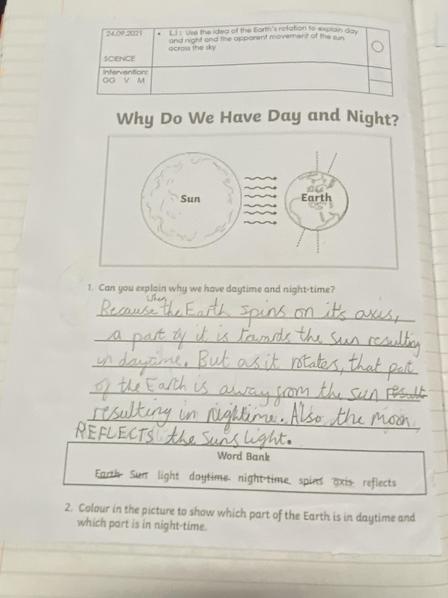 24.09.2021
SCIENCE
• L.I: Use the idea of the Earth's rotation to explain day
and night and the apparent movement of the sun
across the sky
Intervention:
GG V M
Why Do We Have Day and Night?
Sun
Earth
1. Can you explain why we have daytime and night-time?
when
Because the Earth spins on it's axis,
a part of it is towards the sun resulting
in daytime. But as it rotates, that part
of the Earth is away from the sun result
resulting in nightime. Also the moon
REFLECTS the suns light.
Word Bank
Earth Sun light daytime night-time spins axis reflects
2. Colour in the picture to show which part of the Earth is in daytime and
which part is in night-time.